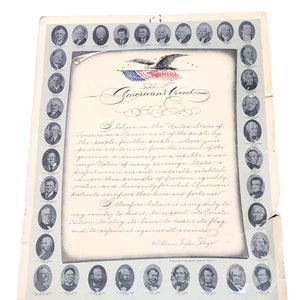 The
American's Creed
I believe in the United States of
America as a government of the people, by
the people, for the people; whose just
powers are derived from the consent of the
governed; a democracy in a republic; a sov-
ereign Nation of many sovereign States; a
perfect union, one and inseparable; establish-
ed upon those principles of freedom, equality,
justice, and humanity for which American
patriots sacrificed their lives and fortunes.
I therefore believe it is my duty to
my country to love it; to support its Consti-
tution; to obey its laws; to respect its flag;
and to defend it against all enemies.
William Tyler Page